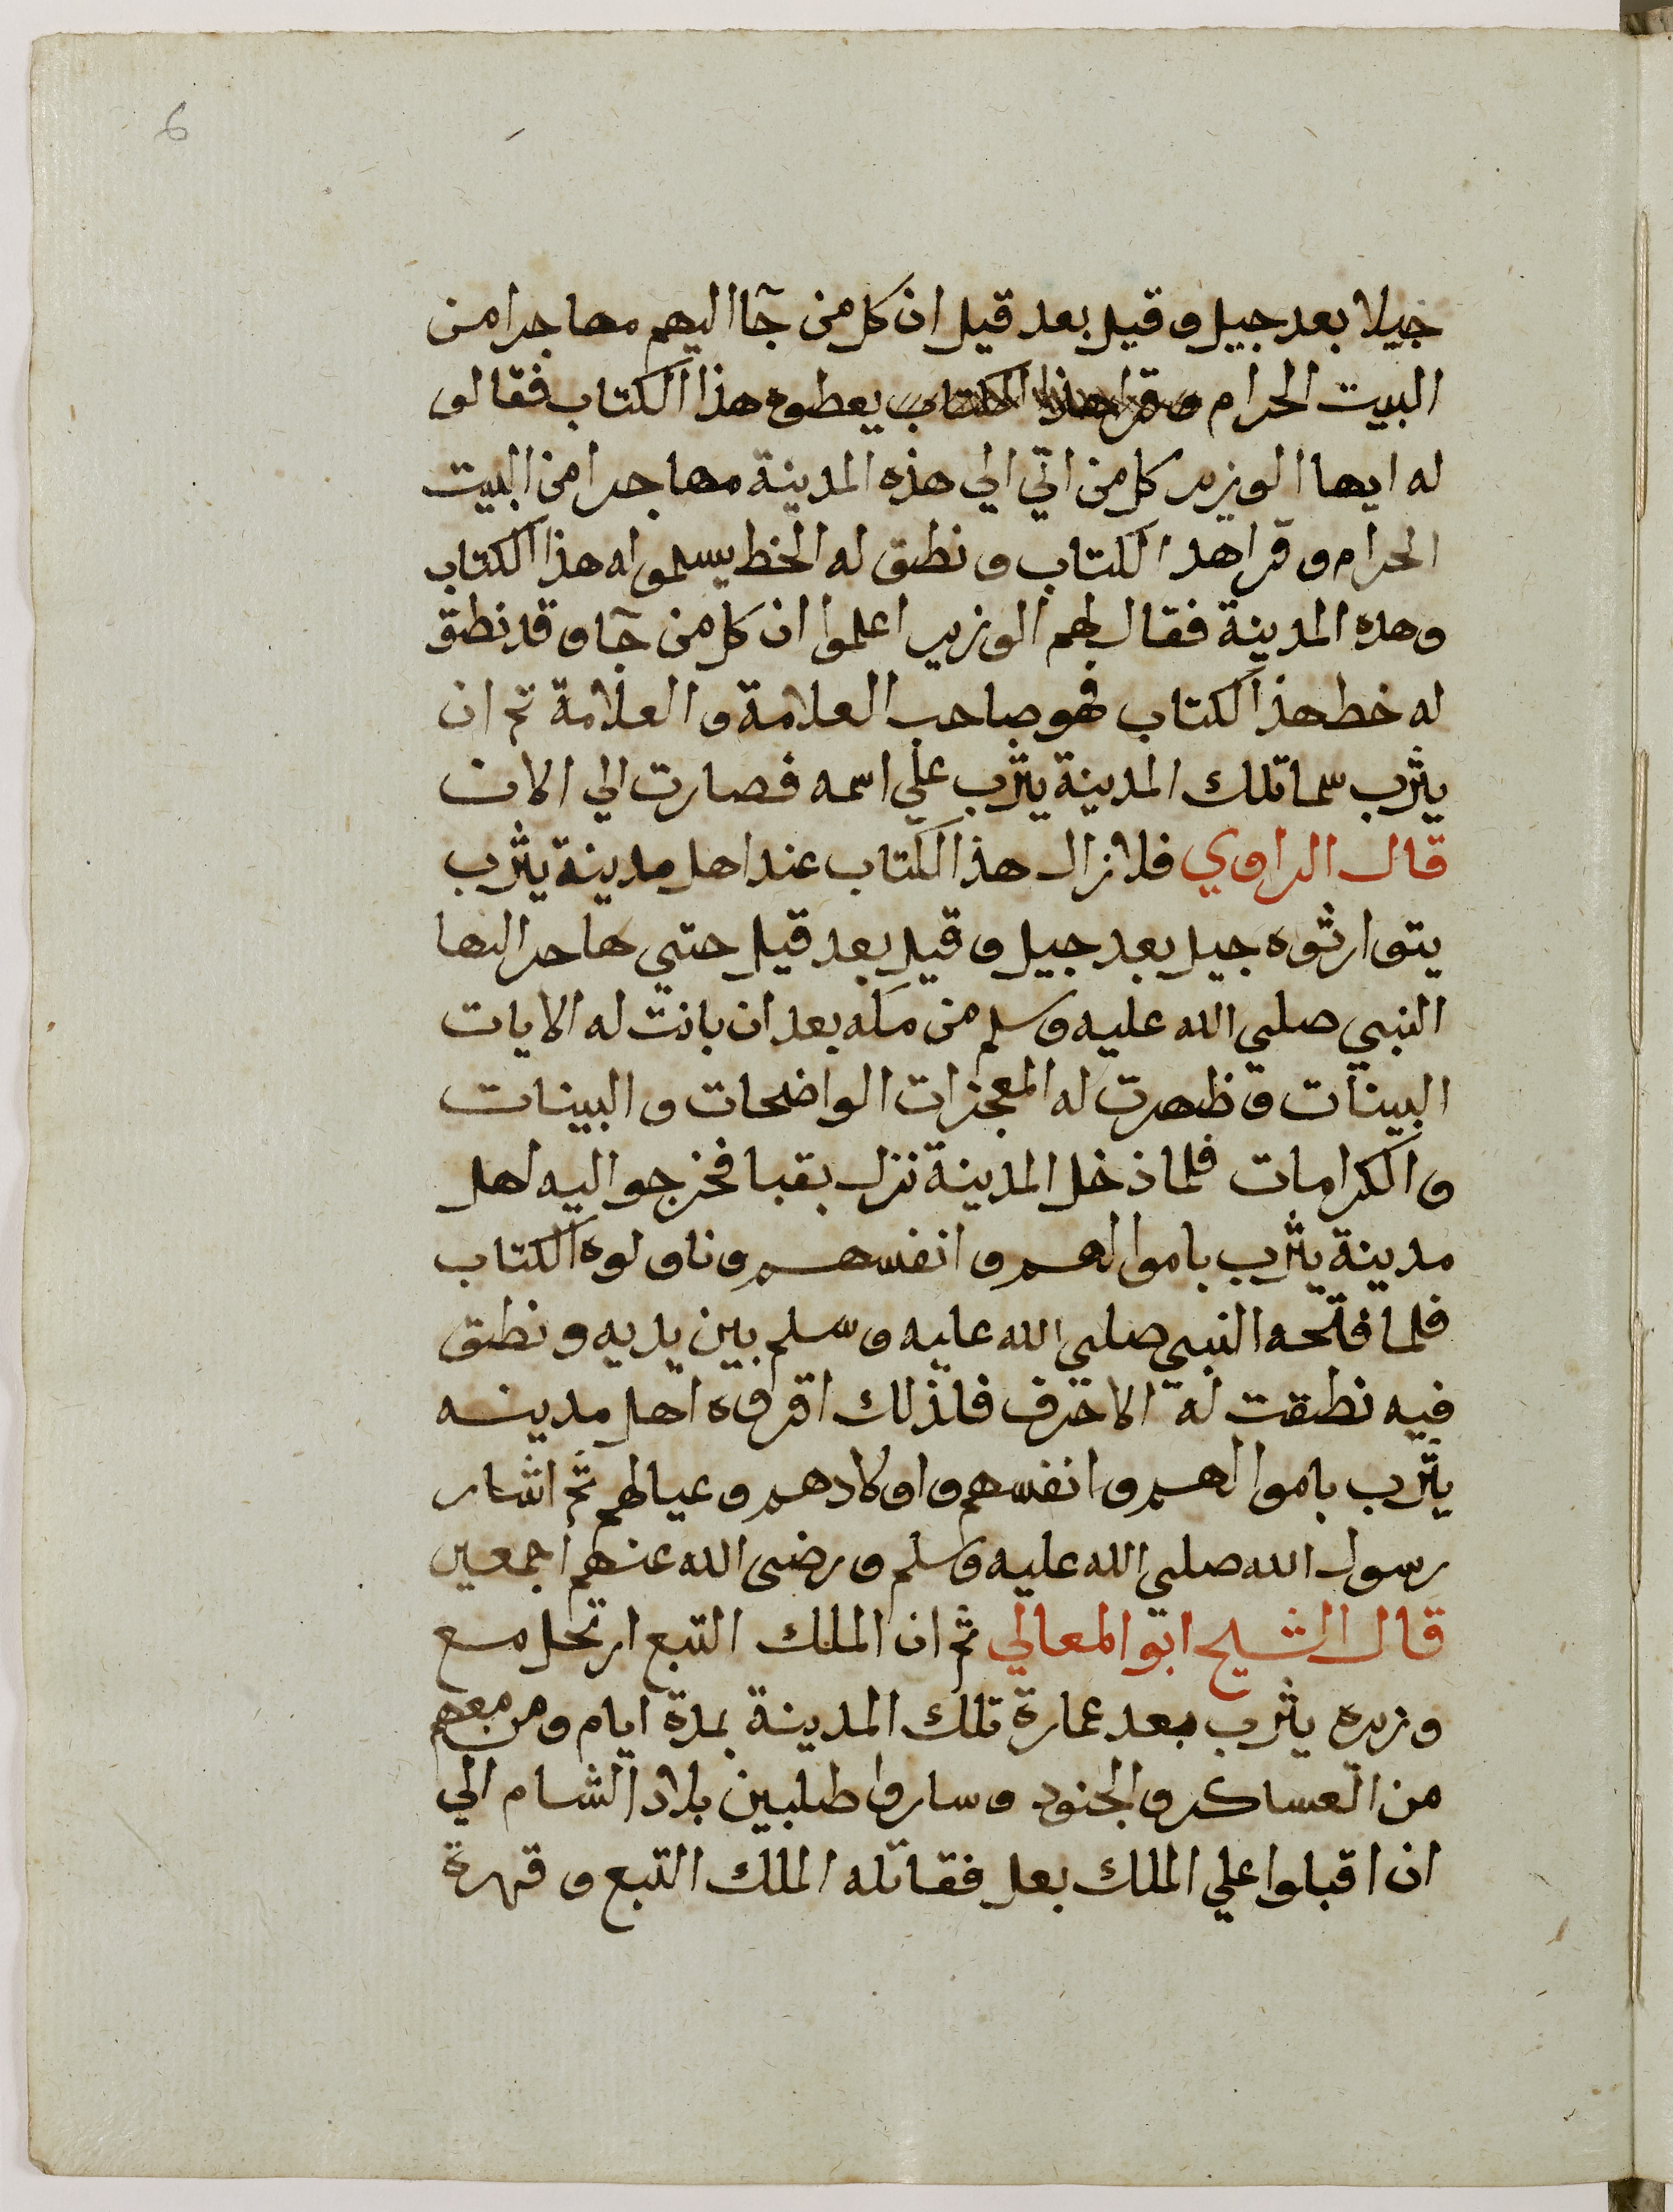 6
جيلا بعد جيل وقيل بعد قيل ان كل من جآ اليهم مهاجرا من
البيت الحرام وقرا هذا الكتاب يعطوه هذا الكتاب فقالو
له ايها الوزير كل من اتي الي هذه المدينة مهاجرا من البيت
الحرام وقرا هذ الكتاب ونطق له الخط يسلموا له هذا الكتاب
وهذه المدينة فقال لهم الوزير اعلموا ان كل من جآ وقد نطق
له خط هذ الكتاب فهو صاحب العلامة والعلامة ثم ان
يثرب سما تلك المدينة يثرب علي اسمه فصارت الي الان
قال الراوي فلا زال هذ الكتاب عند اهل مدينة يثرب
يتوارثوه جيل بعد جيل وقيل بعد قيل حتي هاجر اليها
النبي صلي الله عليه وسلم من مكه بعد ان بانت له الايات
البينات وظهرت له المعجزات الواضحات والبينات
والكرامات فلما ذخل المدينة نزل بقبا فخرجوا اليه اهل
مدينة يثرب باموالهم وانفسهم وناولوه الكتاب
فلما فتحه النبي صلي الله عليه وسلم بين يديه ونطق
فيه نطقت له الاحرف فلذلك اقروه اهل مدينه
يثرب باموالهم وانفسهم واولادهم وعيالهم ثم اشار
رسول الله صلي الله عليه وسلم ورضى الله عنهم اجمعين
قال الشيخ ابو المعالي ثم ان الملك التبع ارتحل مع
وزيره يثرب بعد عمارة تلك المدينة بمدة ايام ومن معهم
من العساكر والجنود وساروا طلبين بلاد الشام الي
ان اقبلوا علي الملك بعل فقاتله الملك التبع وقهرة